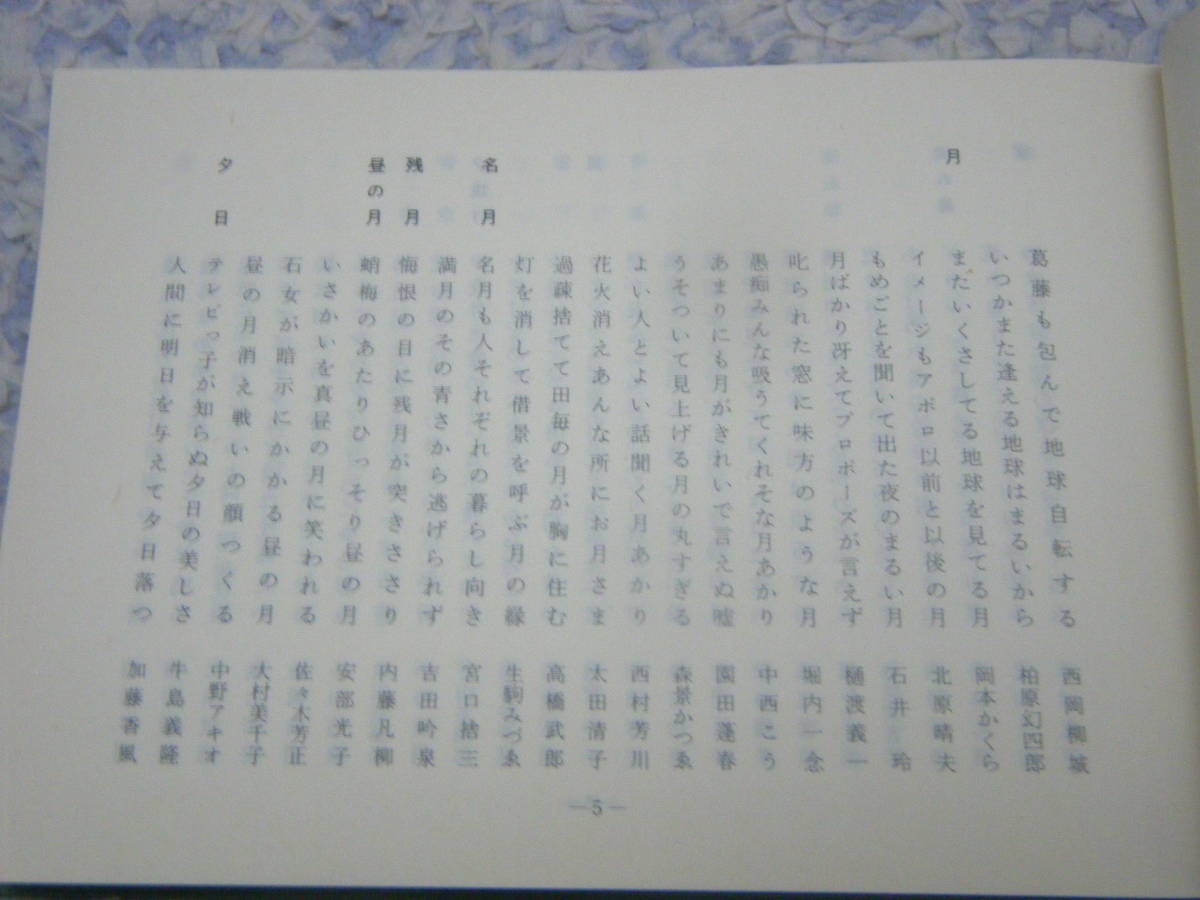 葛藤も包んで地球自転する 西岡柳城
いつかまた逢える地球はまるいから 柏原幻四郎
月 まだいくさしてる地球を見てる月 岡本かくら
イメージもアポロ以前と以後の月 北原晴夫
もめごとを聞いて出た夜のまるい月 石井玲
月ばかり冴えてプロポーズが言えず 樋渡義一
叱られた窓に味方のような月 堀内一念
愚痴みんな吸うてくれそな月あかり 中西こう
あまりにも月がきれいで言えぬ嘘 園田蓬春
うそついて見上げる月の丸すぎる 森景かつゑ
よい人とよい話聞く月あかり 西村芳川
花火消えあんな所にお月さま 太田清子
過疎捨てて田毎の月が胸に住む 高橋武郎
灯を消して借景を呼ぶ月の縁 生駒みづゑ
名月 名月も人それぞれの暮らし向き 宮口捨三
満月のその青さから逃げられず 吉田吟泉
残月 悔恨の目に残月が突きささり 内藤凡柳
昼の月 蛸梅のあたりひっそり昼の月 安部光子
いさかいを真昼の月に笑われる 佐々木芳正
石女が暗示にかかる昼の月 大村美千子
昼の月消え戦いの顔つくる 中野アキオ
夕日 テレビっ子が知らぬ夕日の美しさ 牛島義隆
人間に明日を与えて夕日落つ 加藤香風
—5—